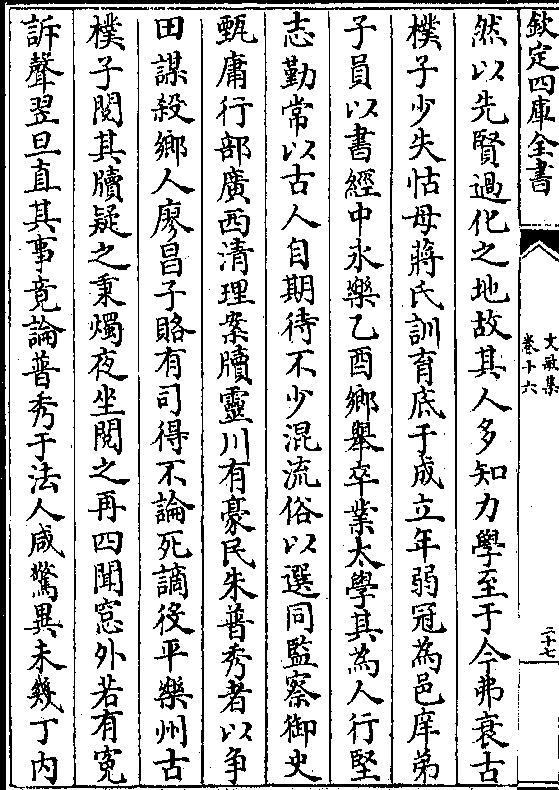 欽定四庫全書
文敏集
卷十六
二十七
然以先賢過化之地故其人多知力學至于今弗衰古
樸子少失怙母蔣氏訓育底于成立年弱冠為邑庠弟
子員以書經中永樂乙酉鄉舉卒業太學其為人行堅
志勤常以古人自期待不少混流俗以選同監察御史
甄庸行部廣西清理案牘靈川有豪民朱普秀者以爭
田謀殺鄉人廖昌子賂有司得不論死謫役平樂州古
樸子閱其牘疑之秉燭夜坐閱之再四聞窓外若有寃
訴聲翌旦直其事竟論普秀于法人咸驚異未幾丁內